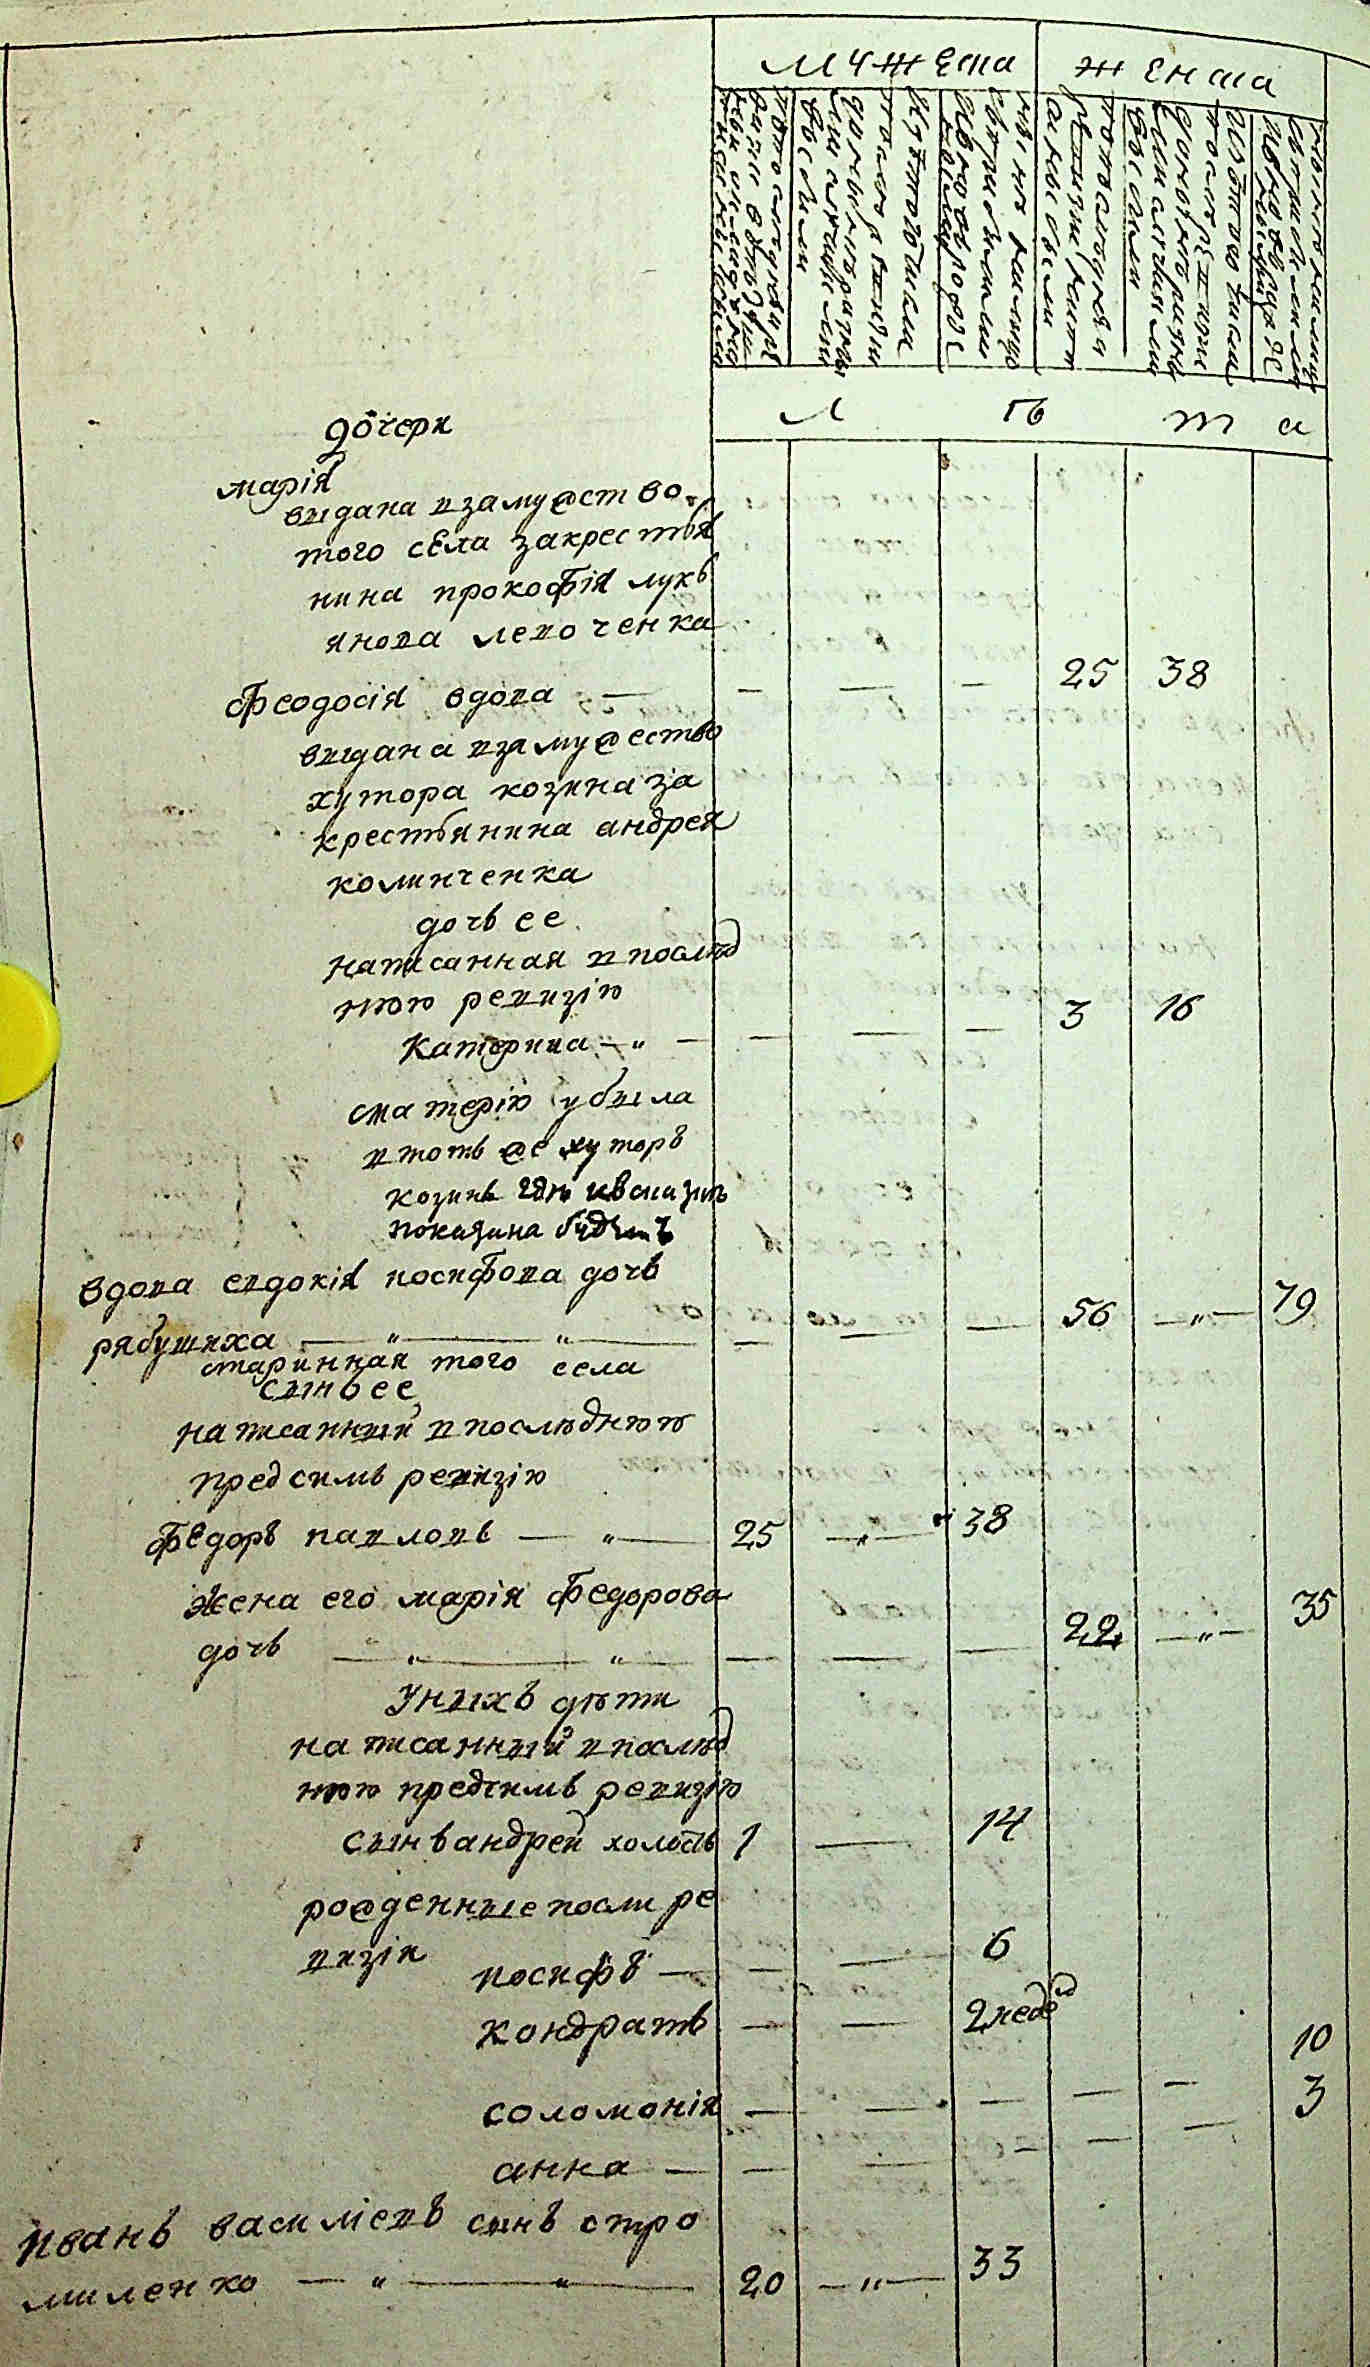 мужеска женска
лѣта
дочери
марія
выдана взамужство
того села закрестья
нина прокофія лукь
янова левоченка
феодосія вдова — — — — 25 38
выдана взамужество
хутора козина за
крестьянина андрея
коминченка
дочь ее
написанная впослѣд
нюю ревизію
Катерина — „ — — — — 3 16
сматерію убыла
втотъ же хуторъ
козинъ гдѣ
показана будетъ
вдова евдокія иосифова дочь
рябушиха — „ — „ — — — — 56 — „ — 79
старинная того села
сынъ ее
написанный впослѣднюю
предсимъ ревизію
Федоръ павловъ — „ — 25 — „ — 38
Жена его марія федорова
дочь — „ — „ — — — — 22 — „ — 35
Унихъ дѣти
написанный впослѣд
нюю предсимъ ревизію
сынъ андрей холостъ 1 — 14
рожденные посли ре
визіи
иосифъ — — — 6
кондратъ — — 2 недѣ
соломонія — — — — — 10
анна — — — — — — 3
иванъ василіевъ сынъ стро
миленко — „ — „ — 20 — „ — 33